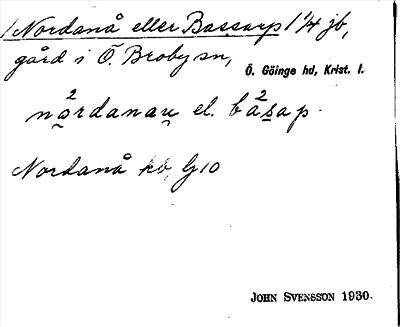 1 Nordanå eller Bassarp 1 1/4 jb,
gård i Ö. Broby sn,
Ö. Göinge hd, Krist. l.
nå²rdanau el. bå²sap.
Nordanå kb, G10
JOHN SVENSSON 1930.